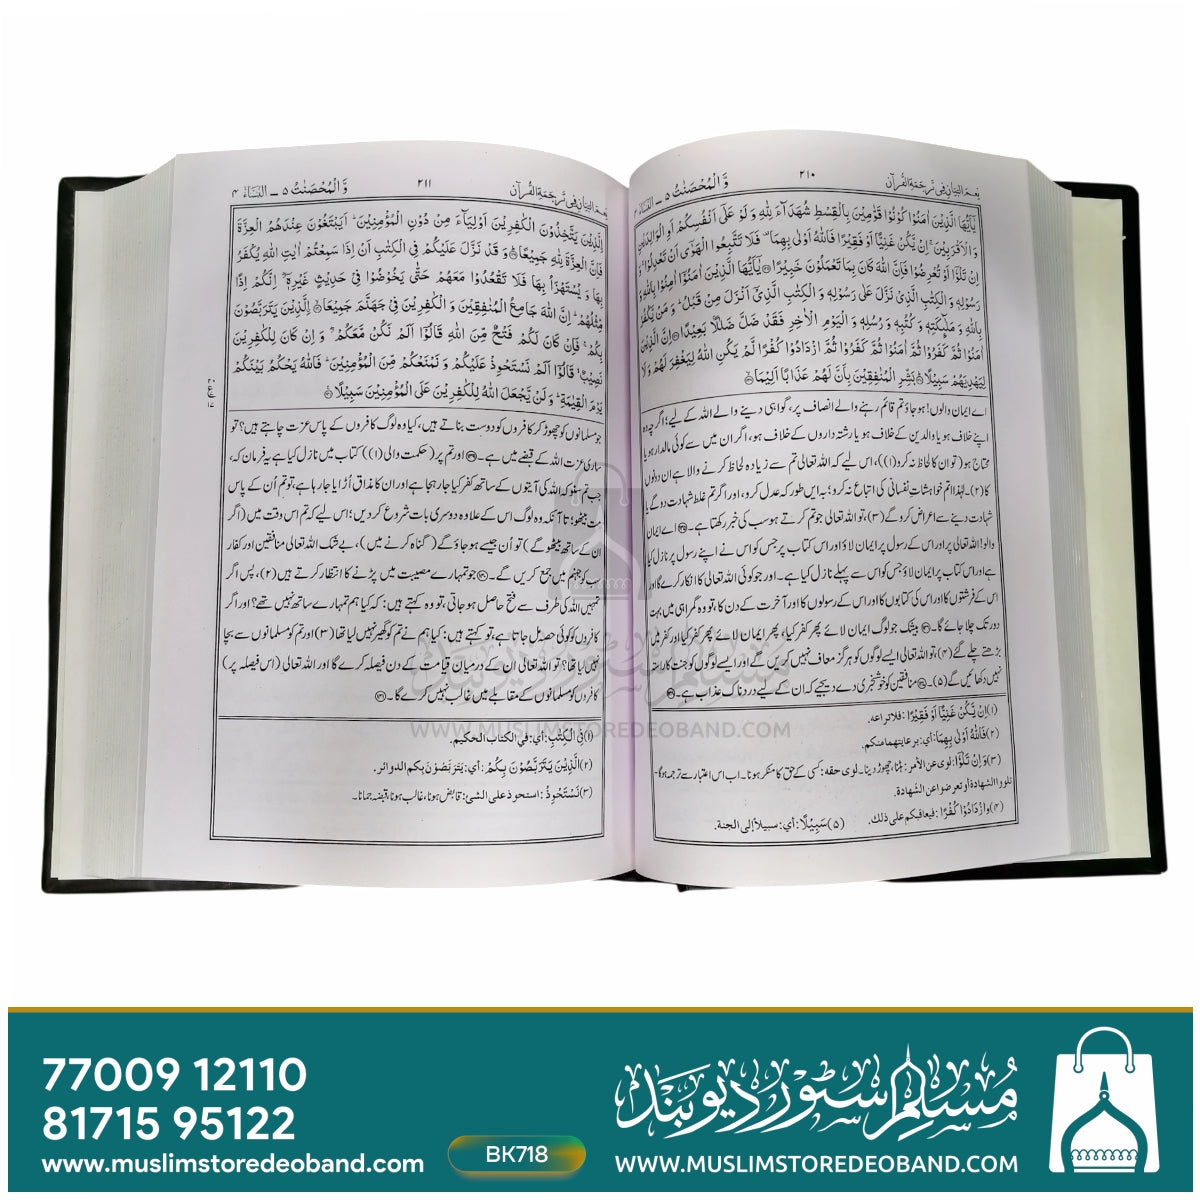 نعم البیان فی ترجمۃ القرآن ۲۱۰ وَ الْمُحْصَنٰتُ ۵ – النساء ۴
یٰۤاَیُّهَا الَّذِیْنَ اٰمَنُوْا كُوْنُوْا قَوّٰمِیْنَ بِالْقِسْطِ شُهَدَآءَ لِلّٰهِ وَ لَوْ عَلٰۤی اَنْفُسِكُمْ اَوِ الْوَالِدَیْنِ
وَ الْاَقْرَبِیْنَ ۚ اِنْ یَّكُنْ غَنِیًّا اَوْ فَقِیْرًا فَاللّٰهُ اَوْلٰی بِهِمَا ۫ فَلَا تَتَّبِعُوا الْهَوٰۤی اَنْ تَعْدِلُوْا ۚ وَ
اِنْ تَلْوٗۤا اَوْ تُعْرِضُوْا فَاِنَّ اللّٰهَ كَانَ بِمَا تَعْمَلُوْنَ خَبِیْرًا ﴿۱۳۵﴾ یٰۤاَیُّهَا الَّذِیْنَ اٰمَنُوْۤا اٰمِنُوْا بِاللّٰهِ وَ
رَسُوْلِهٖ وَ الْكِتٰبِ الَّذِیْ نَزَّلَ عَلٰی رَسُوْلِهٖ وَ الْكِتٰبِ الَّذِیْۤ اَنْزَلَ مِنْ قَبْلُ ؕ وَ مَنْ یَّكْفُرْ
بِاللّٰهِ وَ مَلٰٓىِٕكَتِهٖ وَ كُتُبِهٖ وَ رُسُلِهٖ وَ الْیَوْمِ الْاٰخِرِ فَقَدْ ضَلَّ ضَلٰلًۢا بَعِیْدًا ﴿۱۳۶﴾ اِنَّ الَّذِیْنَ
اٰمَنُوْا ثُمَّ كَفَرُوْا ثُمَّ اٰمَنُوْا ثُمَّ كَفَرُوْا ثُمَّ ازْدَادُوْا كُفْرًا لَّمْ یَكُنِ اللّٰهُ لِیَغْفِرَ لَهُمْ وَ لَا
لِیَهْدِیَهُمْ سَبِیْلًا ﴿۱۳۷﴾ بَشِّرِ الْمُنٰفِقِیْنَ بِاَنَّ لَهُمْ عَذَابًا اَلِیْمًا ﴿۱۳۸﴾
اے ایمان والوں! ہوجاؤ تم قائم رہنے والے انصاف پر، گواہی دینے والے اللہ کے لیے؛ اگرچہ وہ
اپنے خلاف ہو یا والدین کے خلاف ہو یا رشتہ داروں کے خلاف ہو، اگر ان میں سے کوئی مالدار ہو یا
محتاج ہو (تو ان کا لحاظ نہ کرو (۱))، اس لیے کہ اللہ تعالیٰ تم سے زیادہ لحاظ کرنے والا ہے ان دونوں
کا (۲)۔ لہٰذا تم خواہشاتِ نفسانی کی اتباع نہ کرو؛ بہ ایں طور کہ عدل کرو، اور اگر تم غلط شہادت دو گے یا
شہادت دینے سے اعراض کرو گے (۳)، تو اللہ تعالیٰ جو تم کرتے ہو سب کی خبر رکھتا ہے۔ اے ایمان
والو! اللہ تعالیٰ پر اور اس کے رسول پر ایمان لاؤ اور اس کتاب پر جس کو اس نے اپنے رسول پر نازل کیا
ہے اور اس کتاب پر ایمان لاؤ جس کو اس سے پہلے نازل کیا ہے۔ اور جو کوئی اللہ تعالیٰ کا انکار کرے گا اور
اس کے فرشتوں کا اور اس کی کتابوں کا اور اس کے رسولوں کا اور آخرت کے دن کا، تو وہ گمراہی میں بہت
دور تک چلا جائے گا۔ بیشک جو لوگ ایمان لائے پھر کفر کیا، پھر ایمان لائے پھر کفر کیا اور کفر میں
بڑھتے چلے گئے (۴)، تو اللہ تعالیٰ ایسے لوگوں کو ہرگز معاف نہیں کریں گے اور ایسے لوگوں کو جنت کا راستہ
نہیں دکھائیں گے (۵)۔ منافقین کو خوشخبری دے دیجیے کہ ان کے لیے دردناک عذاب ہے۔
(۱) اِنْ یَّكُنْ غَنِیًّا اَوْ فَقِیْرًا: فلا تراعه.
(۲) فَاللّٰهُ اَوْلٰی بِهِمَا: أي: برعايتهما منكم.
(۳) وَ اِنْ تَلْوٗۤا: لوی عن الأمر: ہٹنا، چھوڑ دینا۔ لوی حقه: کسی کے حق کا منکر ہونا۔ اب اس اعتبار سے ترجمہ ہوگا-
تلووا الشهادة أو تعرضوا عن الشهادة.
(۴) وازْدَادُوْا كُفْرًا: فيعاقبكم على ذلك. (۵) سَبِیْلًا: أي: سبيلا إلى الجنة.
نعم البیان فی ترجمۃ القرآن ۲۱۱ وَ الْمُحْصَنٰتُ ۵ – النساء ۴
اِلَّذِیْنَ یَتَّخِذُوْنَ الْكٰفِرِیْنَ اَوْلِیَآءَ مِنْ دُوْنِ الْمُؤْمِنِیْنَ ؕ اَیَبْتَغُوْنَ عِنْدَهُمُ الْعِزَّةَ
فَاِنَّ الْعِزَّةَ لِلّٰهِ جَمِیْعًا ﴿۱۳۹﴾ وَ قَدْ نَزَّلَ عَلَیْكُمْ فِی الْكِتٰبِ اَنْ اِذَا سَمِعْتُمْ اٰیٰتِ اللّٰهِ یُكْفَرُ
بِهَا وَ یُسْتَهْزَاُ بِهَا فَلَا تَقْعُدُوْا مَعَهُمْ حَتّٰی یَخُوْضُوْا فِیْ حَدِیْثٍ غَیْرِهٖۤ ۖ اِنَّكُمْ اِذًا
مِّثْلُهُمْ ؕ اِنَّ اللّٰهَ جَامِعُ الْمُنٰفِقِیْنَ وَ الْكٰفِرِیْنَ فِیْ جَهَنَّمَ جَمِیْعًا ﴿۱۴۰﴾ اِلَّذِیْنَ یَتَرَبَّصُوْنَ
بِكُمْ ۚ فَاِنْ كَانَ لَكُمْ فَتْحٌ مِّنَ اللّٰهِ قَالُوْۤا اَلَمْ نَكُنْ مَّعَكُمْ ۖ وَ اِنْ كَانَ لِلْكٰفِرِیْنَ
نَصِیْبٌ ۙ قَالُوْۤا اَلَمْ نَسْتَحْوِذْ عَلَیْكُمْ وَ نَمْنَعْكُمْ مِّنَ الْمُؤْمِنِیْنَ ؕ فَاللّٰهُ یَحْكُمُ بَیْنَكُمْ
یَوْمَ الْقِیٰمَةِ ؕ وَ لَنْ یَّجْعَلَ اللّٰهُ لِلْكٰفِرِیْنَ عَلَی الْمُؤْمِنِیْنَ سَبِیْلًا ﴿۱۴۱﴾
جو مسلمانوں کو چھوڑ کر کافروں کو دوست بناتے ہیں، کیا وہ لوگ کافروں کے پاس عزت چاہتے ہیں؟ تو
ساری عزت اللہ کے قبضے میں ہے۔ اور تم پر (حکمت والی (۱)) کتاب میں نازل کیا ہے یہ فرمان کہ،
جب تم سنو کہ اللہ کی آیتوں کے ساتھ کفر کیا جارہا ہے اور ان کا مذاق اُڑایا جارہا ہے، تو تم اُن کے پاس
مت بیٹھو؛ تا آنکہ وہ لوگ اس کے علاوہ دوسری بات شروع کردیں؛ اس لیے کہ تم اس وقت میں (اگر
ان کے ساتھ بیٹھو گے) تو اُن جیسے ہوجاؤ گے (گناہ کرنے میں)، بے شک اللہ تعالیٰ منافقین اور کفار
سب کو جہنم میں جمع کریں گے۔ جو تمہارے مصیبت میں پڑنے کا انتظار کرتے ہیں (۲)، پس اگر
تمہیں اللہ کی طرف سے فتح حاصل ہوجاتی، تو وہ کہتے ہیں: کہ کیا ہم تمہارے ساتھ نہیں تھے؟ اور اگر
کافروں کو کوئی حصہ مل جاتا ہے، تو کہتے ہیں: کیا ہم نے تم کو گھیر نہیں لیا تھا (۳) اور تم کو مسلمانوں سے بچا
نہیں لیا تھا؟ تو اللہ تعالیٰ ان کے درمیان قیامت کے دن فیصلہ کرے گا اور اللہ تعالیٰ (اس فیصلہ پر)
کافروں کو مسلمانوں کے مقابلے میں غالب نہیں کرے گا۔
(۱) فِی الْكِتٰبِ: أي: في الكتاب الحكيم.
(۲) الَّذِیْنَ یَتَرَبَّصُوْنَ بِكُمْ: أي: يَتَرَبَّصُوْنَ بكم الدوائر.
(۳) نَسْتَحْوِذْ: استحوذ على الشئ: قابض ہونا، غالب ہونا، قبضہ جمانا۔
مسلم سٹور دیوبند
WWW.MUSLIMSTOREDEOBAND.COM
77009 12110
81715 95122
www.muslimstoredeoband.com
BK718
مسلم سٹور دیوبند
WWW.MUSLIMSTOREDEOBAND.COM